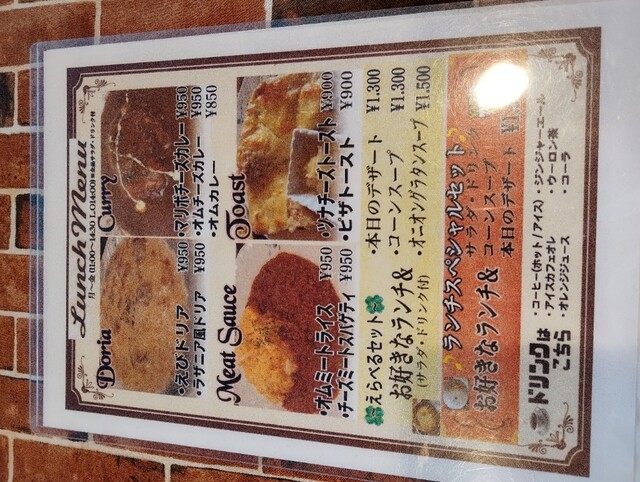 Lunch Menu
月～金(11:00～14:30 L.O14:00)※全品サラダ・ドリンク付
Curry
・マリボチーズカレー ¥950
・オムチーズカレー ¥950
・オムカレー ¥850
Doria
・えびドリア ¥950
・ラザニア風ドリア ¥950
Toast
・ツナチーズトースト ¥900
・ピザトースト ¥900
Meat Sauce
・オムミートライス ¥950
・チーズミートスパゲティ ¥950
えらべるセット
お好きなランチ&
(サラダ・ドリンク付)
・本日のデザート ¥1.300
・コーンスープ ¥1.300
・オニオングラタンスープ ¥1.500
ランチスペシャルセット
お好きなランチ&
サラダ・ドリンク
コーンスープ
本日のデザート
ドリンクは
こちら
・コーヒー(ホット/アイス)
・ジンジャーエール
・アイスカフェオレ
・ウーロン茶
・オレンジジュース
・コーラ